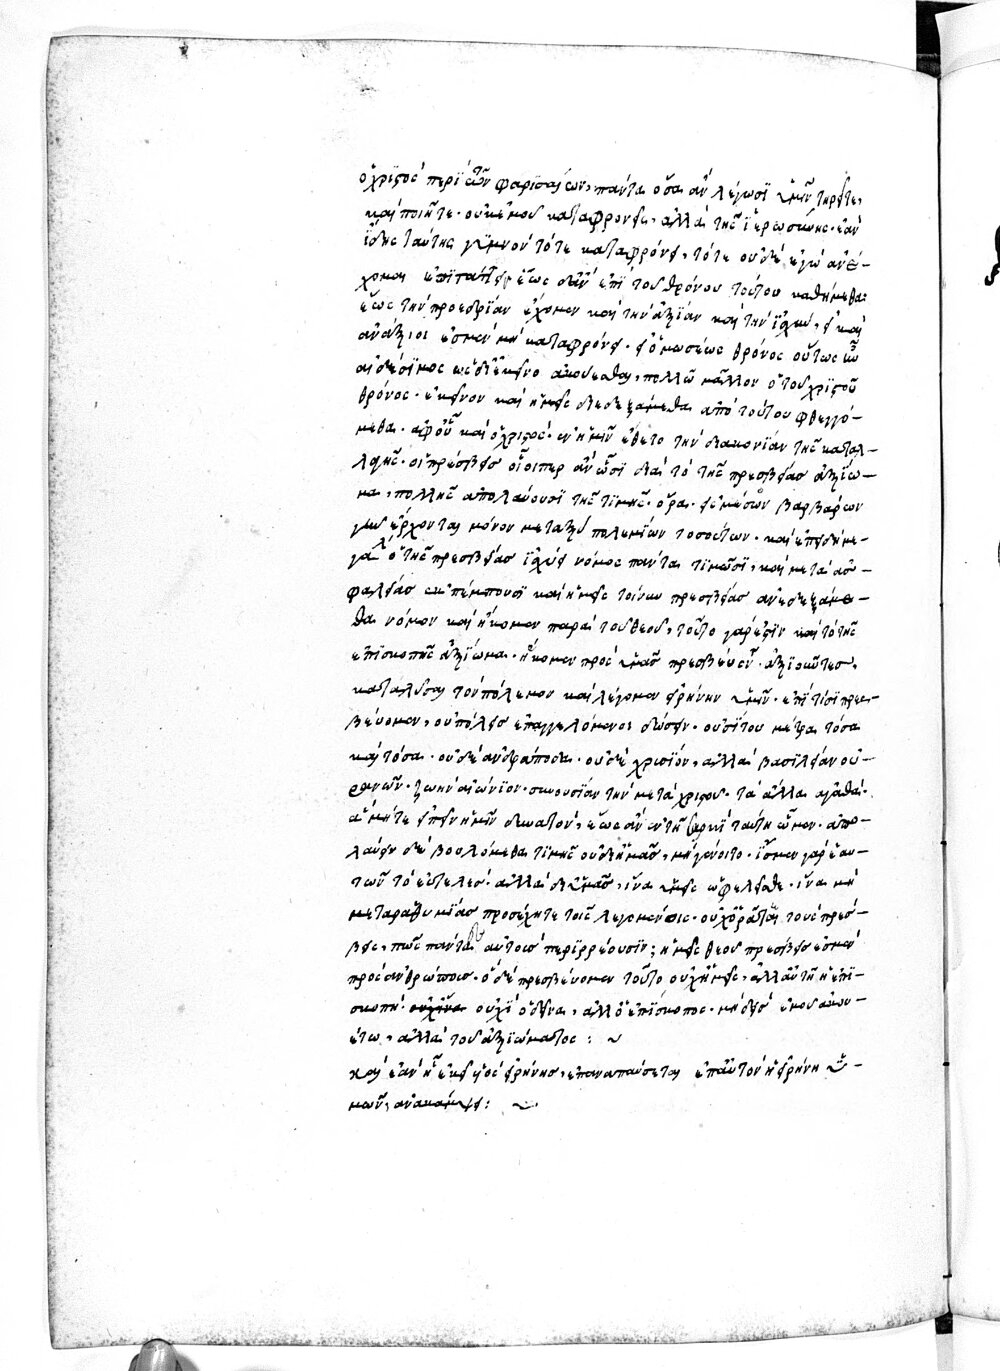 ὁ χριστὸς περὶ τῶν φαρισαίων, πάντα ὅσα ἂν λέγωσι ὑμῖν τηρεῖτε,
καὶ ποιῆτε· οὐκ ἐμοῦ καταφρονεῖς, ἀλλὰ τῆς ἱερωσύνης· ἐὰν
ἴδῃς ταύτης γυμνὸν τότε καταφρόνει, τότε οὐδὲ ἐγὼ ἀνέ-
χομαι ἐπιτάττειν ἕως δ' ἂν ἐπὶ τοῦ θρόνου τούτου καθήμεθα
ἕως τὴν προεδρίαν ἔχομεν καὶ τὴν ἀξίαν καὶ τὴν ἰσχὺν, εἰ καὶ
ἀνάξιοι ἐσμὲν μὴ καταφρόνει· εἰ ὁ μωσέως θρόνος οὕτως ἦν
αἰδέσιμος ὡς δι' ἐκεῖνο ἀκούεσθαι, πολλῶ μᾶλλον ὁ τοῦ χριστοῦ
θρόνος· ἐκεῖνον καὶ ἡμεῖς διεδεξάμεθα ἀπὸ τούτου φθεγγό-
μεθα· ἀφ' οὗ καὶ ὁ χριστὸς· ἐν ἡμῖν ἔθετο τὴν διακονίαν τῆς καταλ-
λαγῆς· οἱ πρέσβεις οἷοιπερ ἂν ὦσι διὰ τὸ τῆς πρεσβείας ἀξίω-
μα, πολλῆς ἀπολαύουσι τῆς τιμῆς· ὅρα· εἰς μέσων βαρβάρων
γῆν ἔρχονται μόνον μεταξὺ πολεμίων τοσούτων· καὶ ἐπειδὴ με-
γάλα ὁ τῆς πρεσβείας ἰσχύει νόμος πάντα τιμῶσι, καὶ μετὰ ἀσ-
φαλείας ἐκπέμπουσι καὶ ἡμεῖς τοίνυν πρεσβείας ἀνεδεξάμε-
θα νόμον καὶ ἥκομεν παρὰ τοῦ θεοῦ, τοῦτο γάρ ἐστιν καὶ τὸ τῆς
ἐπισκοπῆς ἀξίωμα· ἥκομεν πρὸς ὑμᾶς πρεσβεύειν· ἀξιοῦντες,
καταλῦσαι τὸν πόλεμον καὶ λέγομεν εἰρήνην ὑμῖν· ἐπὶ τίσι πρεσ-
βεύομεν, οὐ πόλεις ἐπαγγελόμενοι δώσειν· οὐ σίτου μέτρα τόσα
καὶ τόσα· οὐδὲ ἀνδράποδα· οὐδὲ χρυσίον, ἀλλὰ βασιλείαν οὐ-
ρανῶν· ζωὴν αἰώνιον· συνουσίαν τὴν μετὰ χριστοῦ· τὰ ἄλλα ἀγαθὰ·
ἃ μήτε εἰπεῖν ἡμῖν δυνατὸν, ἕως ἂν ἐν τῆ σαρκὶ ταύτη ὦμεν· ἀπο-
λαύειν δὲ βουλόμεθα τιμῆς οὐ δι' ἡμᾶς, μὴ γένοιτο· ἴσμεν γὰρ ἑαυ-
τῶν τὸ εὐτελὲς· ἀλλὰ δι' ὑμᾶς, ἵνα ὑμεῖς ὠφελεῖσθε· ἵνα μὴ
μετὰ ραθυμίας προσέχητε τοῖς λεγομένοις· οὐχ' ὁρᾶται τοὺς πρέσ-
βεις, πῶς πάντα αὐτοῖς περιρρέουσιν; ἡμεῖς θεοῦ πρέσβεις ἐσμὲν
πρὸς ἀνθρώποις· ὃ δὲ πρεσβεύομεν τοῦτο οὐχ' ἡμεῖς, ἀλλ' αὐτὴ ἡ ἐπι-
σκοπή· οὐχ' ἵνα οὐχὶ ὁ δεῖνα, ἀλλ' ὁ ἐπίσκοπος· μηδεὶς ἐμοῦ ἀκου-
έτω, ἀλλὰ τοῦ ἀξιώματος :
καὶ ἐὰν ἦ ἐκεῖ υἱὸς εἰρήνης, ἐπαναπαύσεται ἐπ' αὐτὸν ἡ εἰρήνη ὑ-
μῶν, ἀνακάμψει :